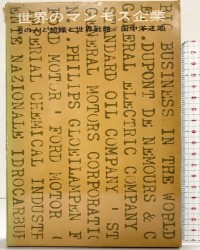 世界のマンモス企業
その人と組織と世界戦略 田中洋之助
BUSINESS IN THE WORLD
E. I. DUPONT DE NEMOURS & C
GENERAL ELECTRIC COMPANY
STANDARD OIL COMPANY ' ST
GENERAL MOTORS CORPORATI
N. PHILIPS GLOEILAMPEN F
FORD MOTOR ' FORD MOTOR (
IMPERIAL CHEMICAL INDUSTR
ENTE NAZIONALE IDROCARBUR